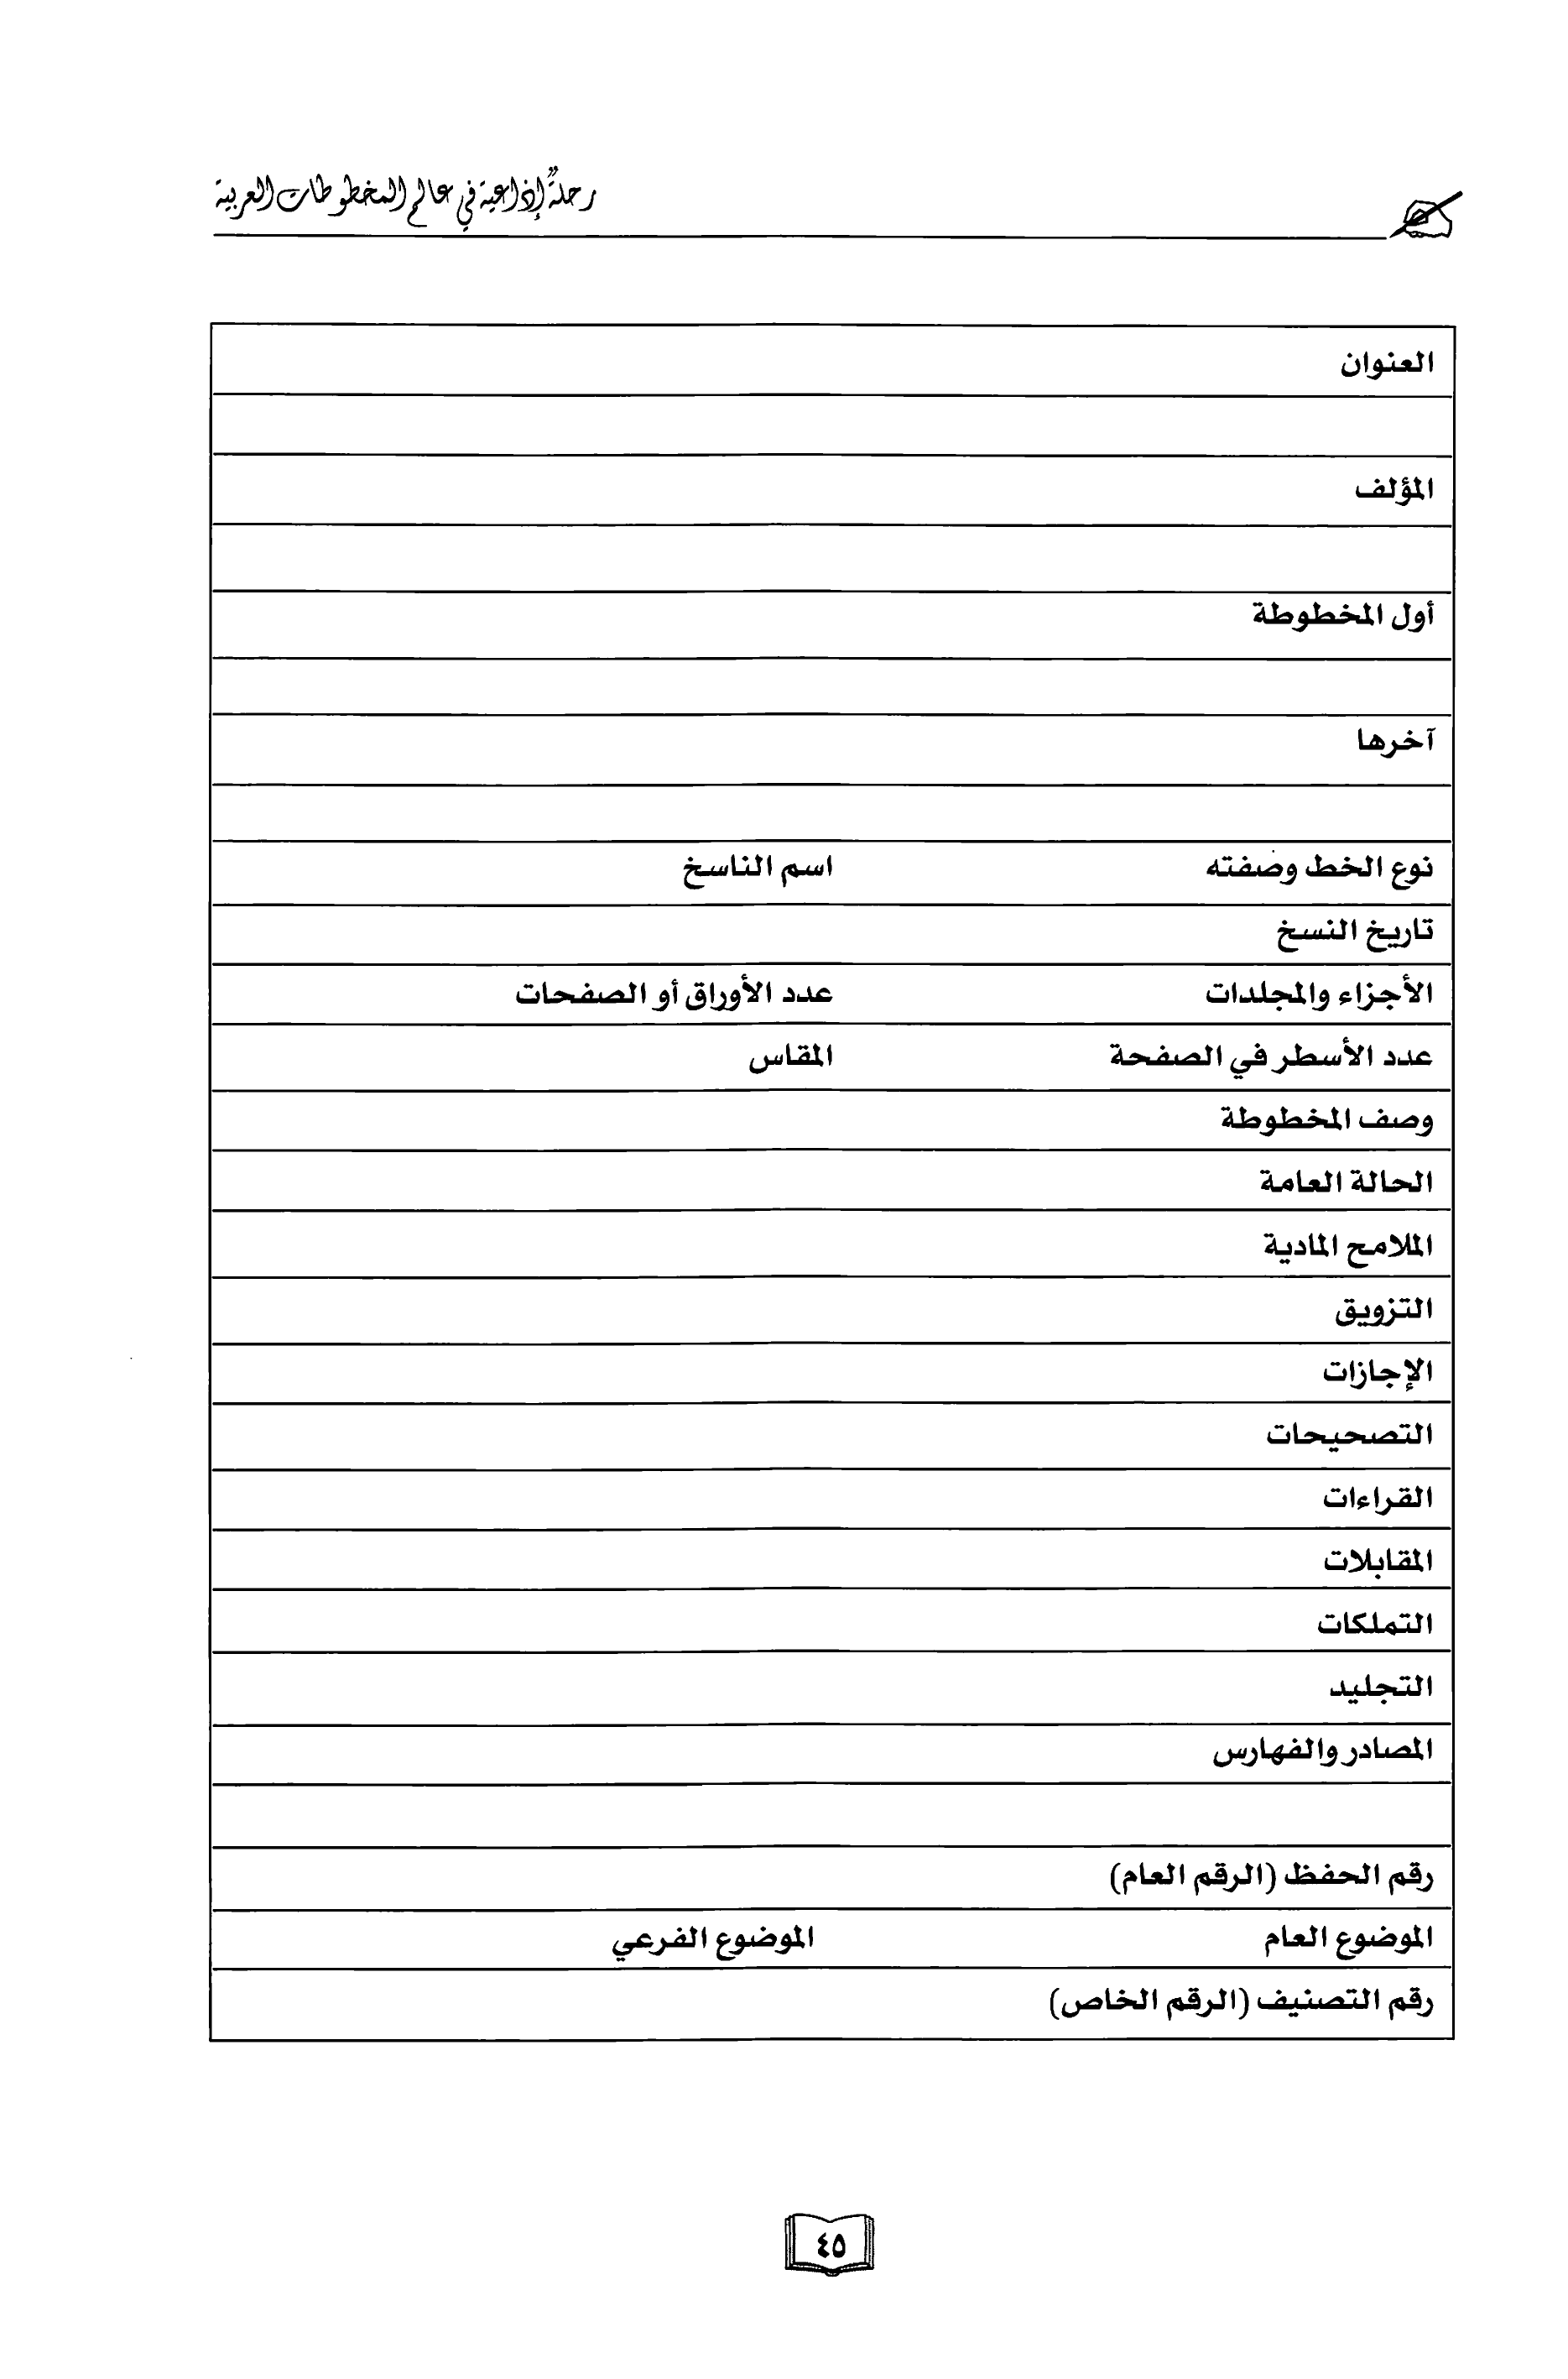 رحلةٌ إذاعية في عالم المخطوطات العربية
العنوان
المؤلف
أول المخطوطة
آخرها
نوع الخط وصفته اسم الناسخ
تاريخ النسخ
الأجزاء والمجلدات عدد الأوراق أو الصفحات
عدد الأسطر في الصفحة المقاس
وصف المخطوطة
الحالة العامة
الملامح المادية
التزويق
الإجازات
التصحيحات
القراءات
المقابلات
التملكات
التجليد
المصادر والفهارس
رقم الحفظ (الرقم العام)
الموضوع العام الموضوع الفرعي
رقم التصنيف (الرقم الخاص)
٤٥